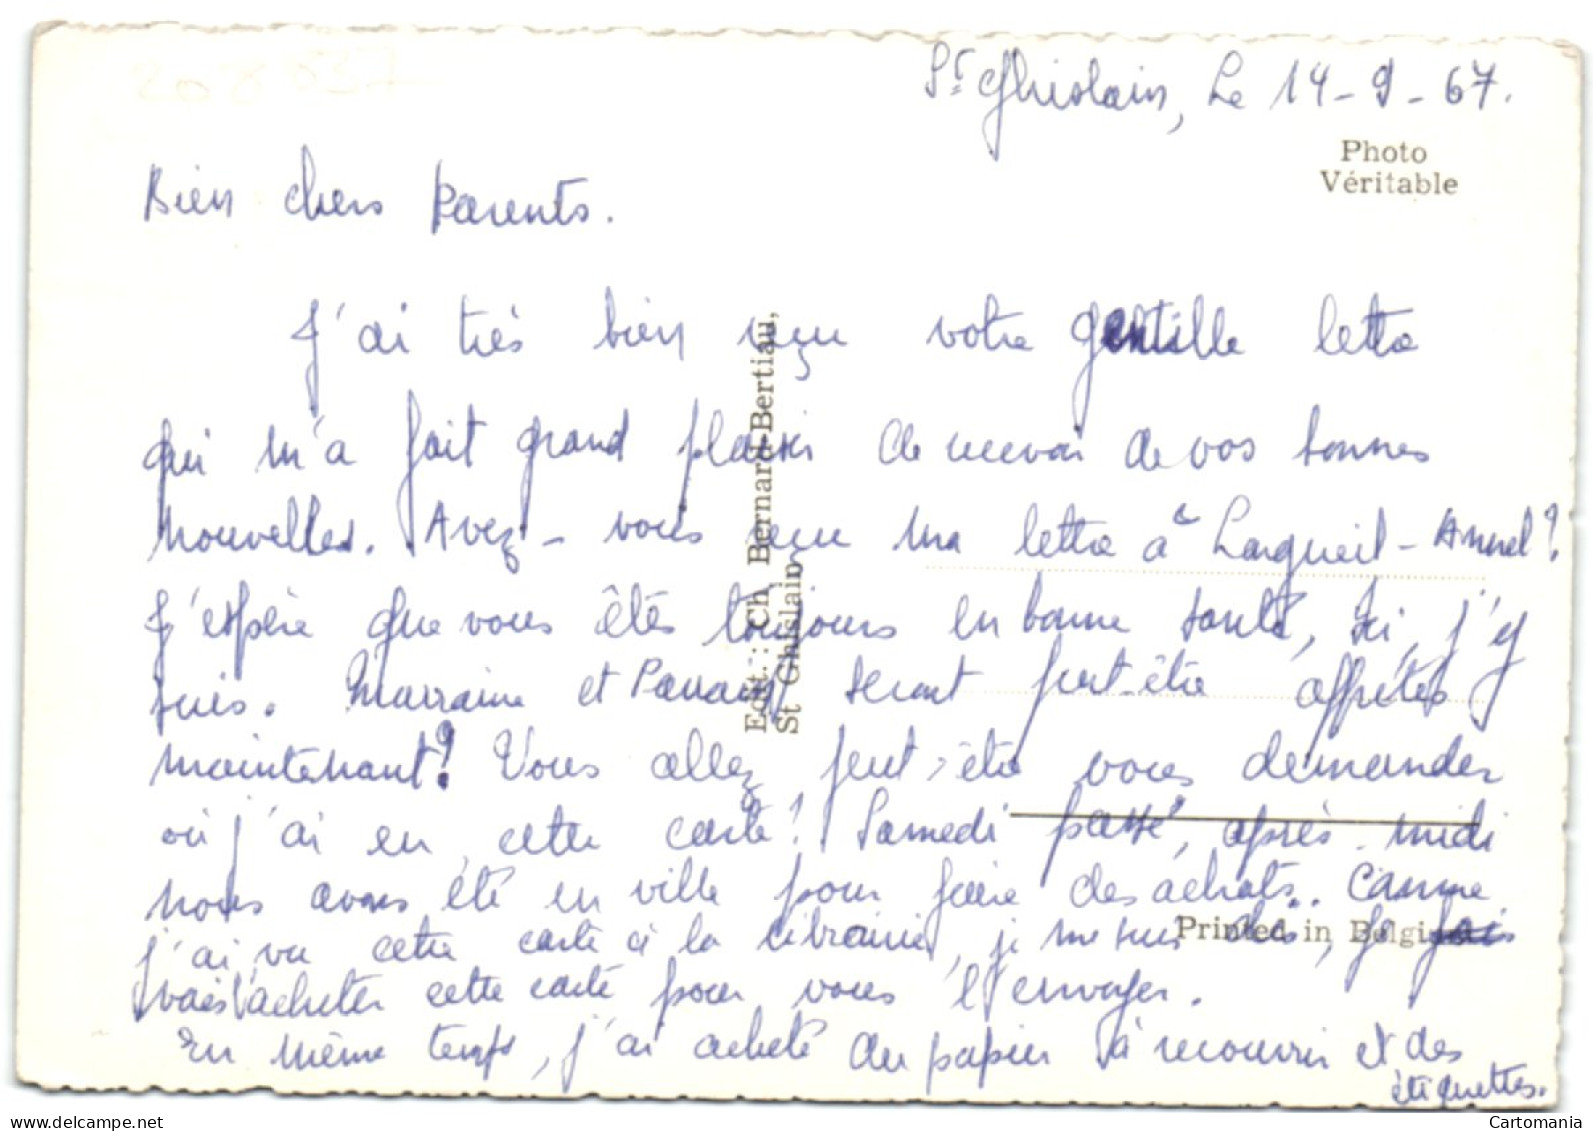 St Ghislain, Le 14-9-67.
Photo
Véritable
Bien chers Parents.
J'ai très bien reçu votre gentille lettre
qui m'a fait grand plaisir de recevoir de vos bonnes
nouvelles. Avez-vous reçu ma lettre à Longueil-Annel?
J'espère que vous êtes toujours en bonne santé, ici, j'y
suis. Marraine et Parrain seront peut-être affrétés
maintenant? Vous allez peut-être vous demander
où j'ai eu cette carte? Samedi passé, après-midi
nous avons été en ville pour faire des achats.. Comme
j'ai vu cette carte à la librairie, je me suis dis, je
vais acheter cette carte pour vous l'envoyer.
En même temps, j'ai acheté du papier à recouvrir et des
étiquettes.
Edit.: Ch. Bernard-Bertiau,
St Ghislain
Printed in Belgium
Cartomania
www.delcampe.net